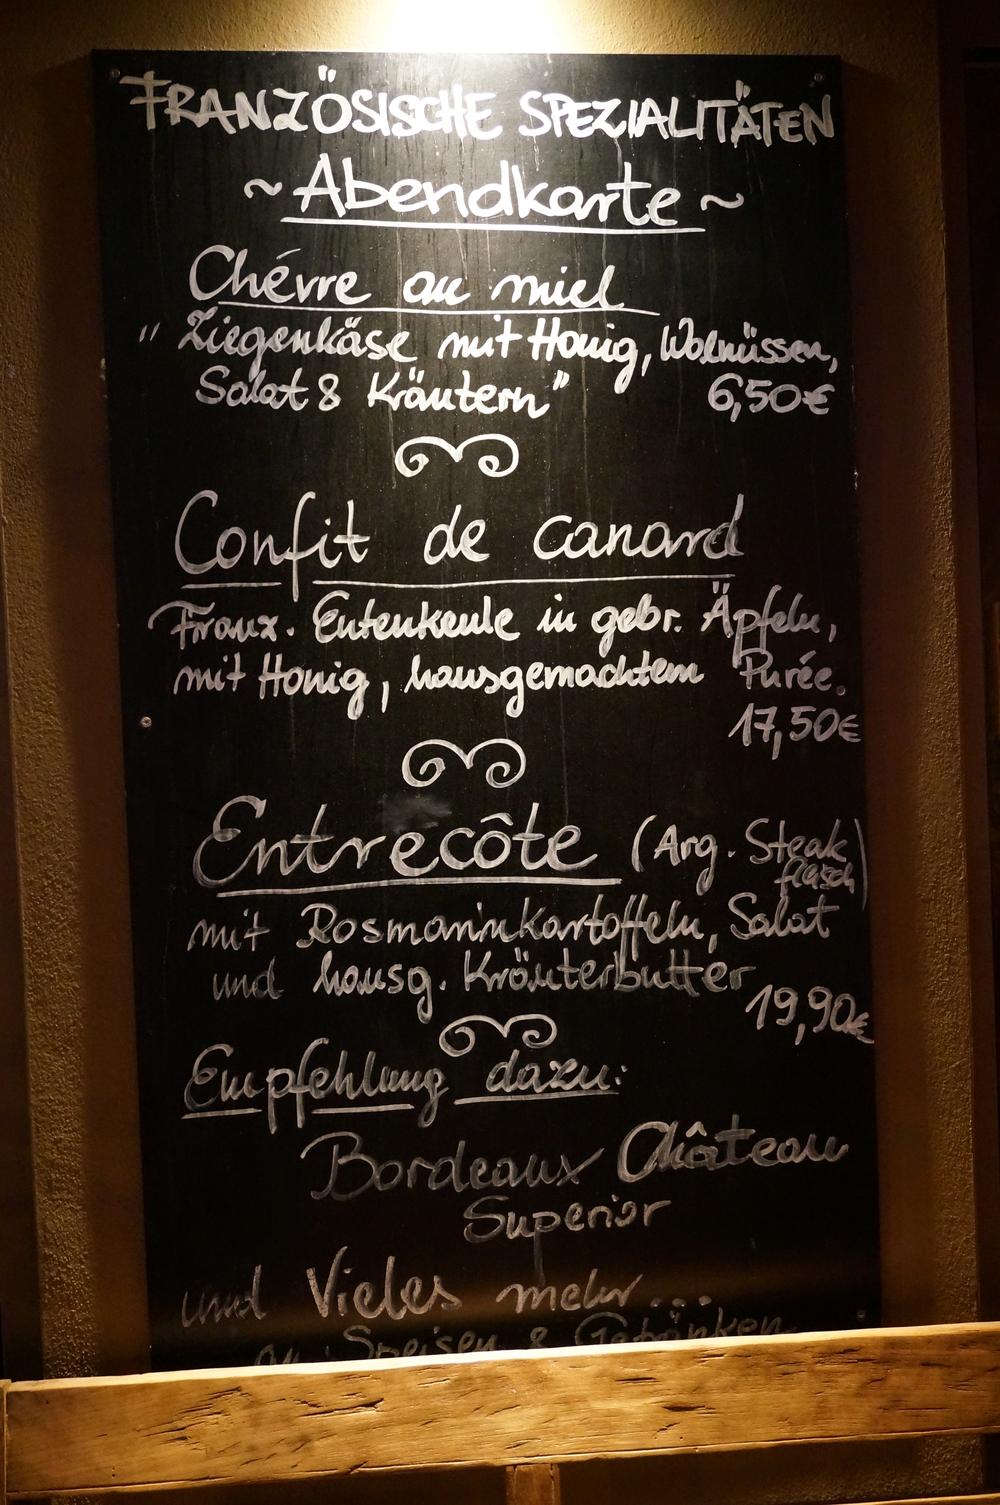 FRANZÖSISCHE SPEZIALITÄTEN
~ Abendkarte ~
Chévre au miel
" Ziegenkäse mit Honig, Walnüssen,
Salat & Kräutern"
6,50€
Confit de canard
Franz. Entenkeule in gebr. Äpfeln,
mit Honig, hausgemachtem Purée.
17,50€
Entrecôte (Arg. Steak
fleisch)
mit Rosmarinkartoffeln, Salat
und hausg. Kräuterbutter
19,90€
Empfehlung dazu:
Bordeaux Château
Superior
und Vieles mehr...
an Speisen & Getränken